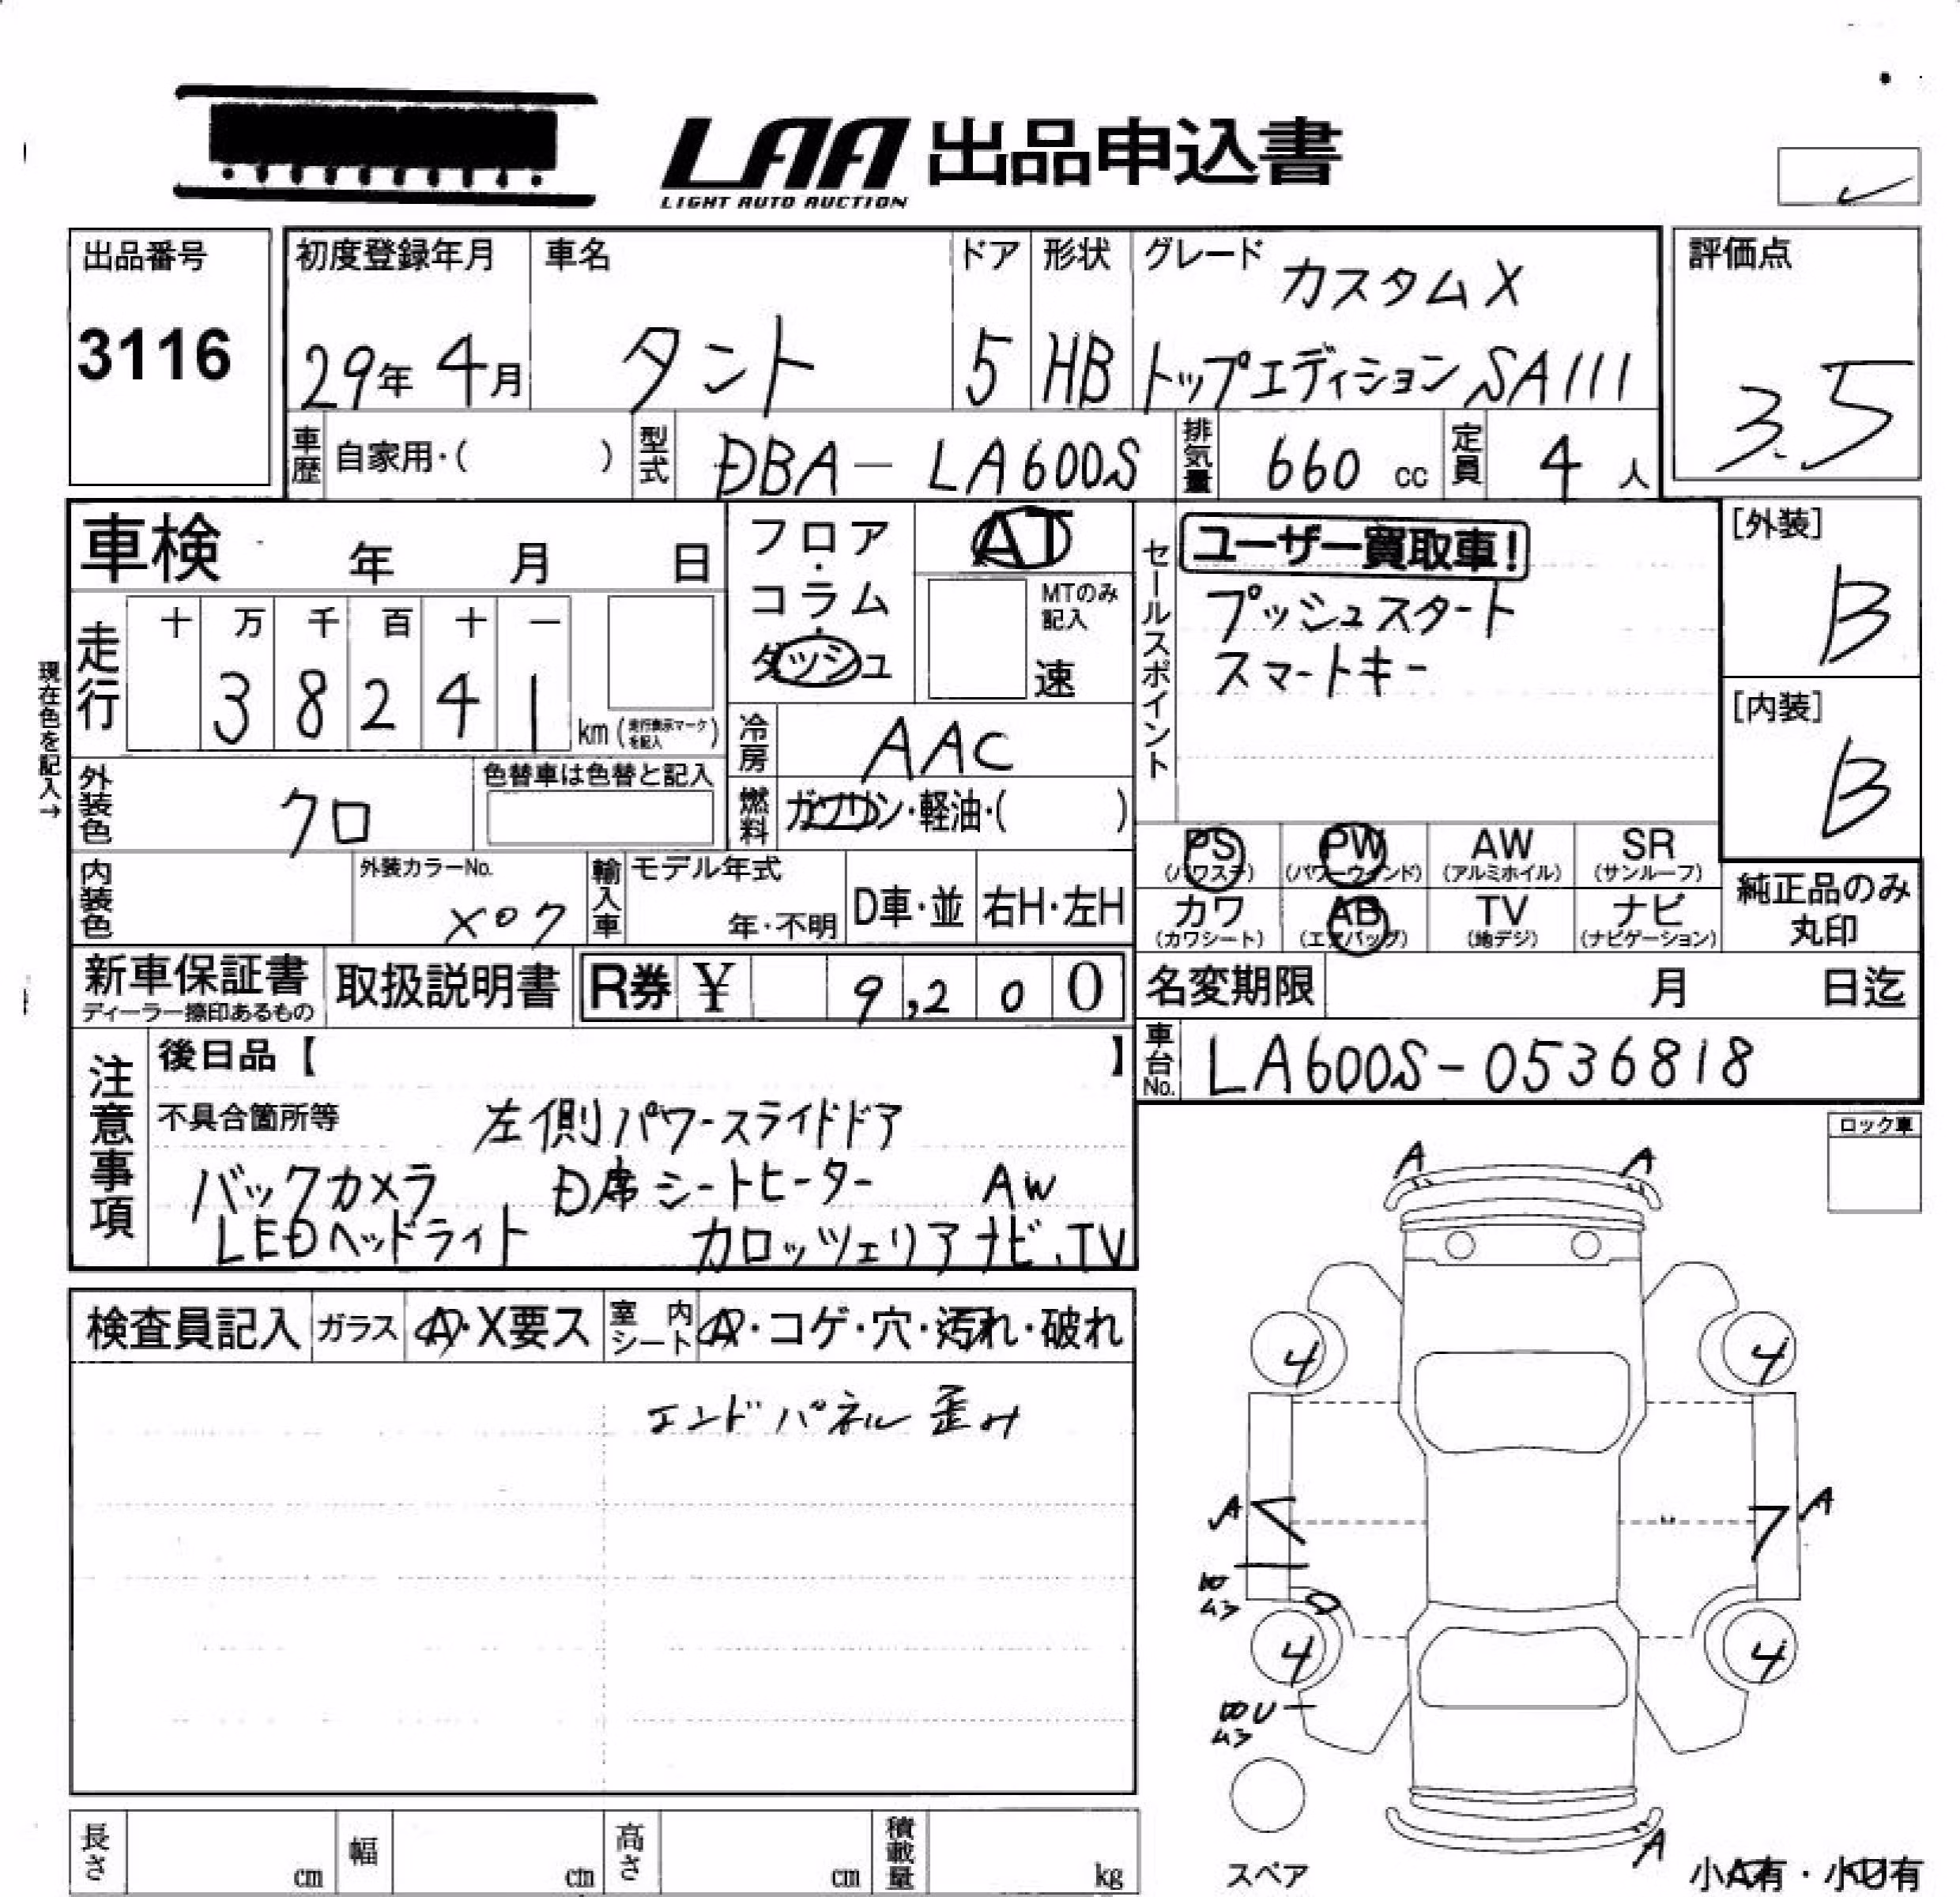 LAA 出品申込書
LIGHT AUTO AUCTION
出品番号
3116
初度登録年月
29年 4月
車名
タント
ドア
5
形状
HB
グレード
カスタムX
トップエディション SAIII
評価点
3.5
車歴 自家用・( )
型式 DBA-LA600S
排気量 660 cc
定員 4 人
車検 年 月 日
現在色を記入→
走行
十 万 千 百 十 一
3 8 2 4 1
km (走行表示マークを記入)
フロア・コラム・ダッシュ
AT
MTのみ記入
速
冷房 AAC
燃料 ガソリン・軽油・( )
セールスポイント
ユーザー買取車!
プッシュスタート
スマートキー
[外装]
B
[内装]
B
外装色 クロ
色替車は色替と記入
内装色
外装カラーNo.
X07
輸入車
モデル年式
年・不明
D車・並
右H・左H
PS (パワステ)
PW (パワーウィンド)
AW (アルミホイル)
SR (サンルーフ)
カワ (カワシート)
AB (エアバッグ)
TV (地デジ)
ナビ (ナビゲーション)
純正品のみ
丸印
新車保証書
ディーラー捺印あるもの
取扱説明書
R券 ¥ 9,200
名変期限 月 日迄
車台No. LA600S-0536818
注意事項
後日品【 】
不具合箇所等 左側パワースライドドア
バックカメラ D席シートヒーター AW
LEDヘッドライト カロッツェリアナビ、TV
ロック車
検査員記入
ガラス A・X要ス
室内シート A・コゲ・穴・汚れ・破れ
エンドパネル歪み
A A
4 4
A A
ムラ
4 4
U
ムラ
A
スペア
小A有・小U有
長さ cm
幅 cm
高さ cm
積載量 kg